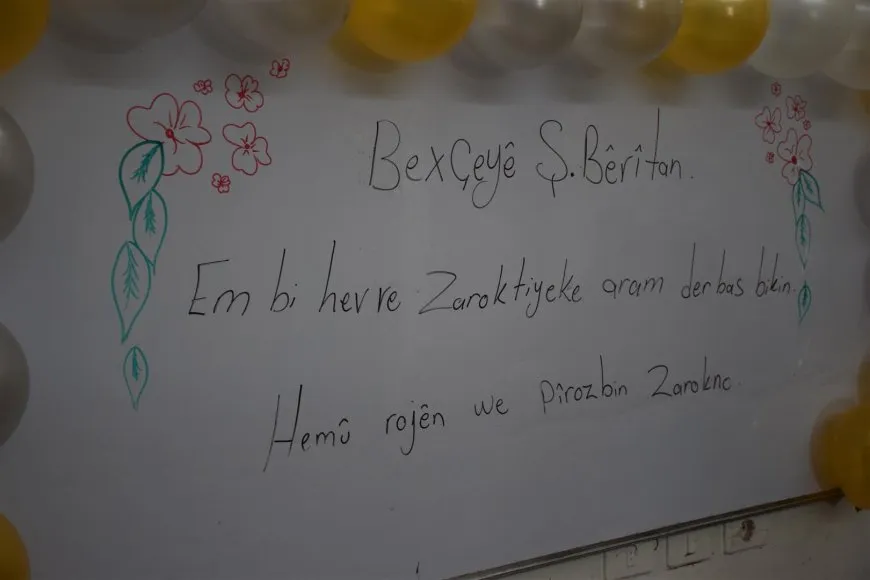 Bexçeyê Ş.Bêrîtan.
Em bi hevre Zaroktiyeke aram derbas bikin.
Hemû rojên we pîrozbin Zarokno.